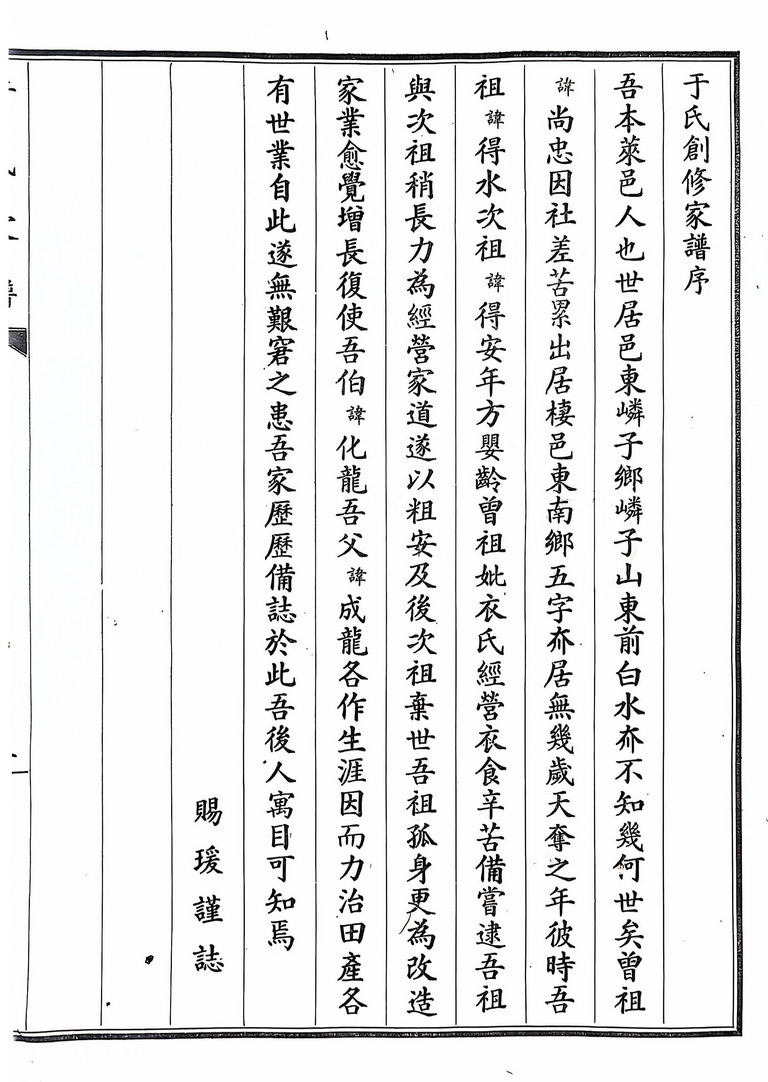 于氏創修家譜序
吾本萊邑人也世居邑東嶙子鄉嶙子山東前白水夼不知幾何世矣曾祖
諱尚忠因社差苦累出居棲邑東南鄉五字夼居無幾歲天奪之年彼時吾
祖諱得水次祖諱得安年方嬰齡曾祖妣衣氏經營衣食辛苦備嘗逮吾祖
與次祖稍長力為經營家道遂以粗安及後次祖棄世吾祖孤身更為改造
家業愈覺增長復使吾伯諱化龍吾父諱成龍各作生涯因而力治田產各
有世業自此遂無艱窘之患吾家歷歷備誌於此吾後人寓目可知焉
賜瑗謹誌